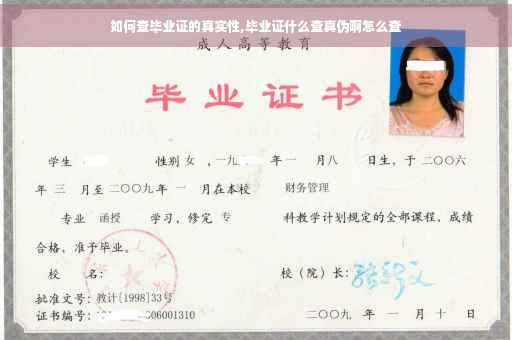 如何查毕业证的真实性,毕业证什么查真伪啊怎么查
成人高等教育
毕业证书
学生 性别 女 ,一九 年一 月八 日生,于二〇〇六
年 三 月至二〇〇九年 一 月在本校 财务管理
专业 函授 学习,修完 专 科教学计划规定的全部课程,成绩
合格,准予毕业。
校 名: 校(院)长:
批准文号:教计[1998]33号
证书编号: 06001310 二〇〇九 年 一 月 十 日